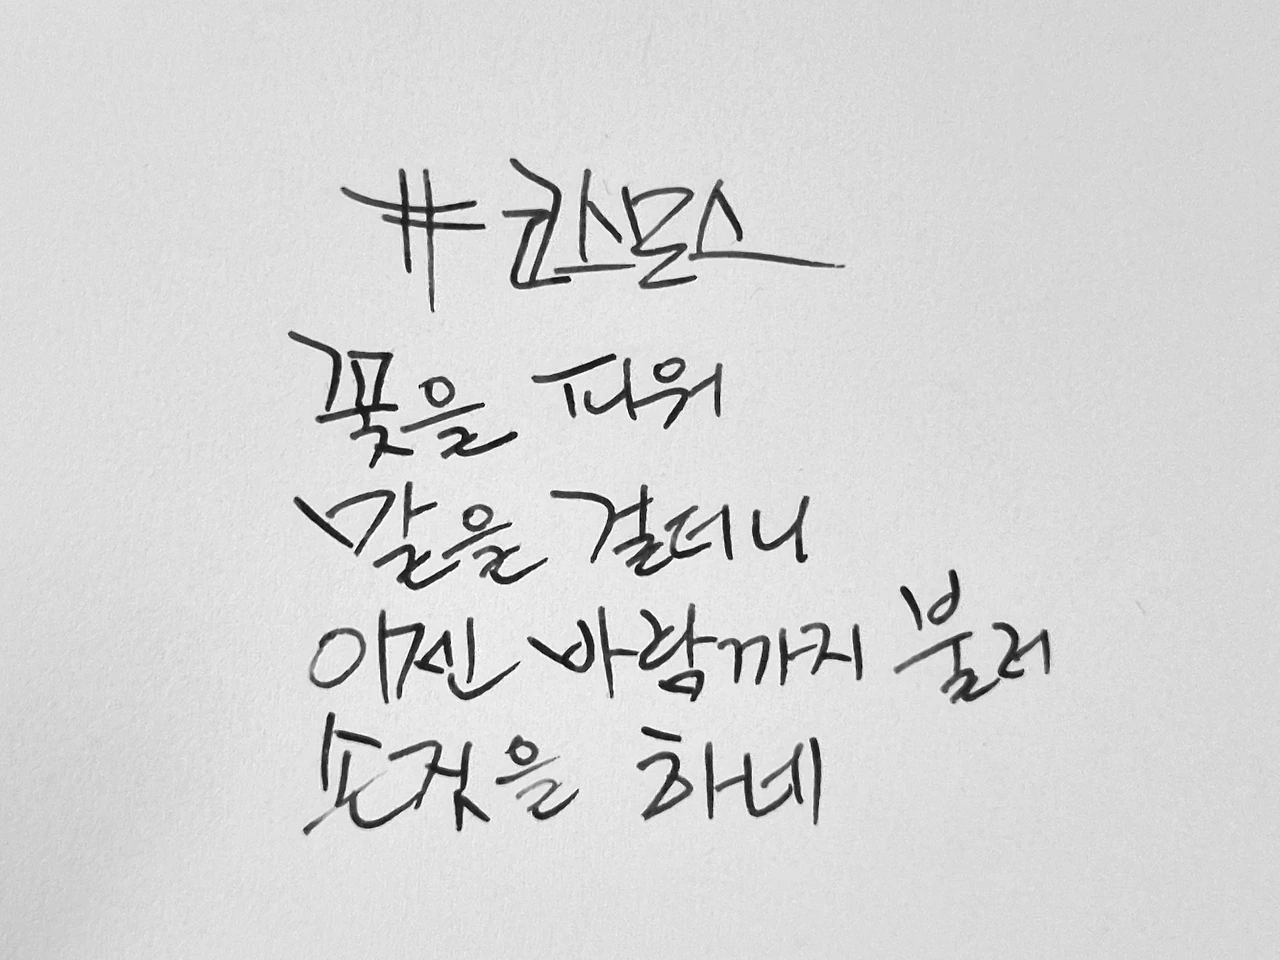 #코스모스
꽃을 피워
말을 걸더니
이젠 바람까지 불러
손짓을 하네